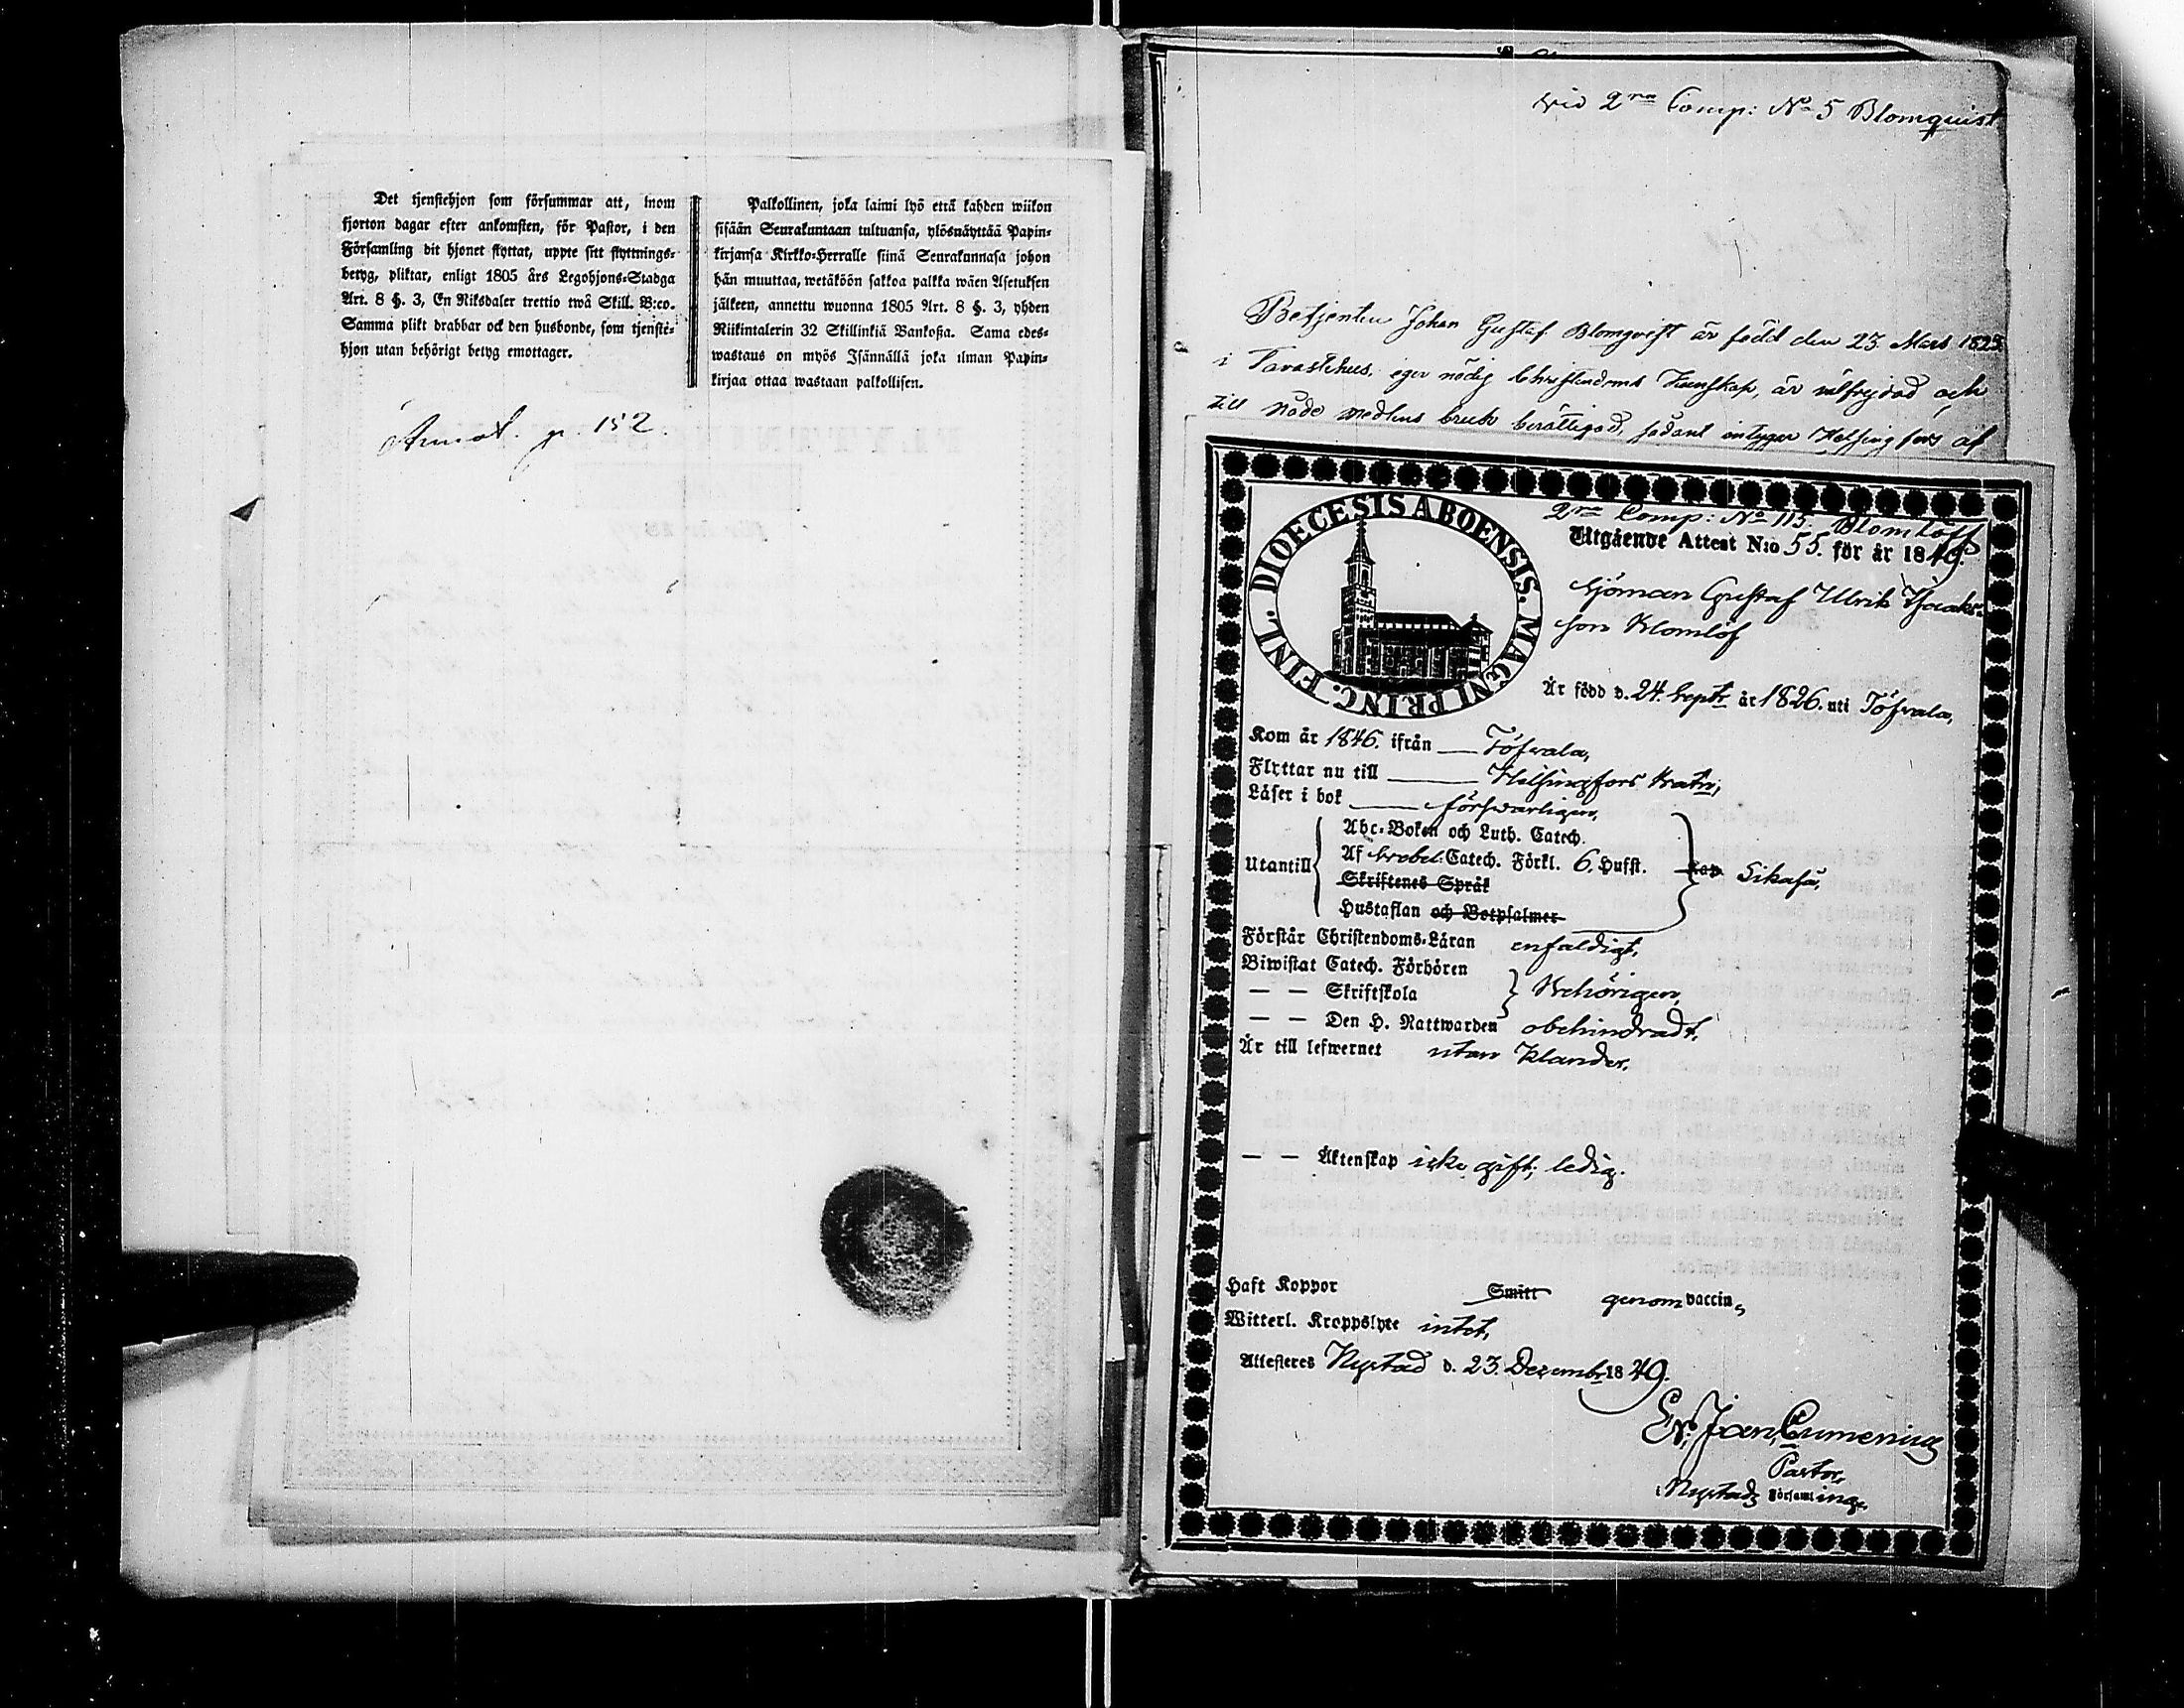 Det tjenstehjon som försummar att, inom
fjorton dagar efter ankomsten, för Pastor, i den
Församling dit hjonet flyttat, uppte sitt flyttnings-
betyg, pliktar, enligt 1805 års Legohjons-Stadga
Art. 8 §. 3, En Riksdaler trettio twå Skill. B:co.
Samma plikt drabbar ock den husbonde, som tjenste-
hjon utan behörigt betyg emottager.
Palkollinen, joka laimi lyö että kahden wiikon
sisään Seurakuntaan tultuansa, ylösnäyttää Papin-
kirjansa Kirkko-Herralle siinä Seurakunnasa johon
hän muuttaa, wetäköön sakkoa palkka wäen Asetuksen
jälkeen, annettu wuonna 1805 Art. 8 §. 3, yhden
Riikintalerin 32 Skillinkiä Bankoßa. Sama edes-
wastaus on myös Isännällä joka ilman Papin-
kirjaa ottaa wastaan palkollisen.
Annot. p. 152.
vid 2ra Comp: No 5 Blomquist
Betjenten Johan Gustaf Blomqvist är född den 23. Mars 1825
i Tavastehus, eger nödig Christendoms Kunskap, är välfrejdad och
till Nåde medlens bruk berättigad, sådant intygar Helsingfors af
2ra Comp: No 115. Blomlöff
DIOECESIS ABOENSIS. MAGNI PRINC. FINL.
Utgående Attest N:o 55. för år 1849.
Sjöman Gustaf Ulrik Isaaks-
son Blomlöf
Är född d. 24. Septr år 1826. uti Töfsala,
Kom år 1846. ifrån Töfsala,
Flyttar nu till Helsingfors
Läser i bok försvarligen,
Utantill
Abc-Boken och Luth. Catech.
Af Svebel. Catech. Förkl. 6. Hufst.
Skriftenes Språk
Hustaflan och Botpsalmer
Förstår Christendoms-Läran enfaldigt,
Biwistat Catech. Förhören
— — Skriftskola Behörigen,
— — Den H. Nattwarden obehindradt,
Är till lefwernet utan klander.
— — Äktenskap icke gift; ledig.
Haft Koppor Smitt genom vaccin,
Witterl. Kroppslyte intet,
Attesteres Nystad d. 23. Decembr 1849.
Joan, Cumenius
Pastor,
i Nystads Församling.